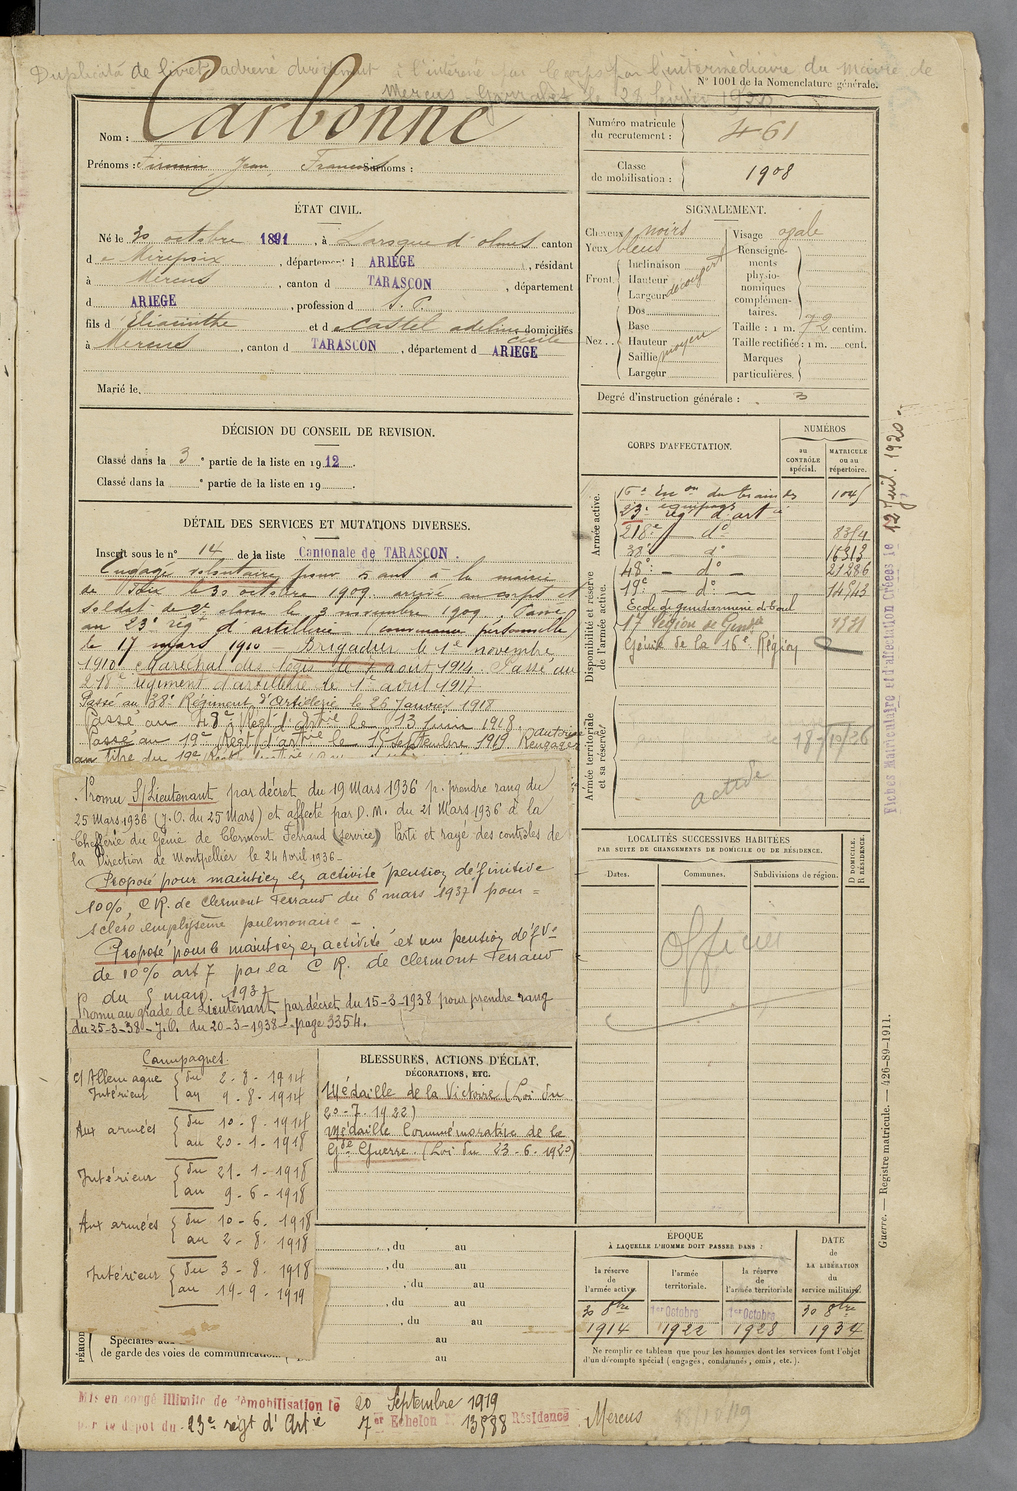 Duplicata de livret adressé directement à l'intéressé par le corps par l'intermédiaire du Maire de
Mercus Garrabet le 28 février 1930
N° 1001 de la Nomenclature générale.
Nom : Carbonne
Prénoms : Firmin Jean, François Surnoms :
Numéro matricule du recrutement : 461
Classe de mobilisation : 1908
ÉTAT CIVIL.
Né le 30 octobre 1891, à Laroque d'olmes canton
d e Mirepoix, département d ARIÉGE, résidant
à Mercus, canton d TARASCON, département
d ARIEGE, profession d S. P.
fils d'Eliacinthe et d e Castel adeline domiciliés
cécile
à Mercus, canton d TARASCON, département d ARIEGE
Marié le
SIGNALEMENT.
Cheveux noirs
Yeux bleus
Front. Inclinaison
Hauteur
Largeur découvert
Nez . . Dos
Base
Hauteur
Saillie moyen
Largeur
Visage ovale
Renseignements physionomiques complémentaires.
Taille : 1 m. 72 centim.
Taille rectifiée : 1 m. cent.
Marques particulières.
Degré d'instruction générale : 3
DÉCISION DU CONSEIL DE REVISION.
Classé dans la 3e partie de la liste en 1912.
Classé dans la e partie de la liste en 19
DÉTAIL DES SERVICES ET MUTATIONS DIVERSES.
Inscrit sous le n° 14 de la liste Cantonale de TARASCON.
Engagé volontaire pour 5 ans à la mairie
de Foix le 30 octobre 1909 arrivé au corps et
soldat de 2e classe le 3 novembre 1909. Passé
au 23e régt d'artillerie (convenance personnelle)
le 17 mars 1910 - Brigadier le 1er novembre
1910 Maréchal des logis le 4 août 1914. Passé au
218e régiment d'artillerie le 1er avril 1917
Passé au 38e Régiment d'Artillerie le 26 Janvier 1918
Passé au 48e Regt d'Artrie le 13 Juin 1918.
Passé au 19e Regt d'artrie le 15 Septembre 1919 autorisé Rengager
au titre du 19e
Promu S/Lieutenant par décret du 19 Mars 1936 p. prendre rang du
25 Mars 1936 (J.O. du 25 Mars) et affecté par D.M. du 21 Mars 1936 à la
Chefferie du Génie de Clermont Ferrand (service) Parti et rayé des contrôles de
la Direction de Montpellier le 24 Avril 1936 -
Proposé pour maintien en activité pension définitive
10%, C.R. de Clermont Ferrand du 6 mars 1937 pour =
sclero emphyseme pulmonaire -
Proposé pour le maintien en activité et une pension défve
de 10% art 7 par la C R. de Clermont Ferrand
du 5 mars 1937
Promu au grade de Lieutenant par décret du 15-3-1938 pour prendre rang
du 25-3-38 - J.O. du 20-3-1938 - page 3354.
CORPS D'AFFECTATION.
NUMÉROS
au CONTRÔLE spécial.
MATRICULE ou au répertoire.
Armée active.
Disponibilité et réserve de l'armée active.
Armée territoriale et sa réserve
16e Eson du train des équipages 104
23e régt d'artie
218e - do - 8354
38e - do 16313
48e - do - 21286
19e - do - 14543
Ecole de gendarmerie d'
17 Légion de Gendie
Génie de la 16e Région
active
Fiches Matriculaire et d'affectation Créées le 12 Juil. 1920
LOCALITÉS SUCCESSIVES HABITÉES
PAR SUITE DE CHANGEMENTS DE DOMICILE OU DE RÉSIDENCE.
Dates. Communes. Subdivisions de région. D DOMICILE. R RÉSIDENCE.
Officier
Campagnes.
c/ Allemagne
Intérieur du 2-8-1914 au 9-8-1914
Aux armées du 10-8-1914 au 20-1-1918
Intérieur du 21-1-1918 au 9-6-1918
Aux armées du 10-6-1918 au 2-8-1918
Intérieur du 3-8-1918 au 14-9-1919
BLESSURES, ACTIONS D'ÉCLAT,
DÉCORATIONS, ETC.
Médaille de la Victoire (Loi du
20-7-1922)
Médaille Commémorative de la
Gde Guerre. (Loi du 23-6-1920)
, du au
, du au
, du au
, du au
, du au
au
PÉRIOD
Spéciales aux
de garde des voies de communication. au
ÉPOQUE
À LAQUELLE L'HOMME DOIT PASSER DANS :
la réserve de l'armée active. l'armée territoriale. la réserve de l'armée territoriale
DATE de LA LIBÉRATION du service militaire.
30 8bre 1914
1er Octobre 1922
1er Octobre 1928
30 8bre 1934
Ne remplir ce tableau que pour les hommes dont les services font l'objet
d'un décompte spécial (engagés, condamnés, omis, etc.).
Guerre. — Registre matricule. — 426-89-1911.
Mis en congé illimité de démobilisation le 20 Septembre 1919
par le dépôt du 23e régt d'Artie 7er Echelon 13588 Résidence Mercus